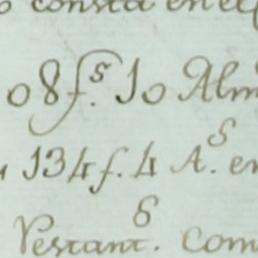 consta en el
08 f.s 10 Alm
134 f. 4 A.s en
Restant.s com